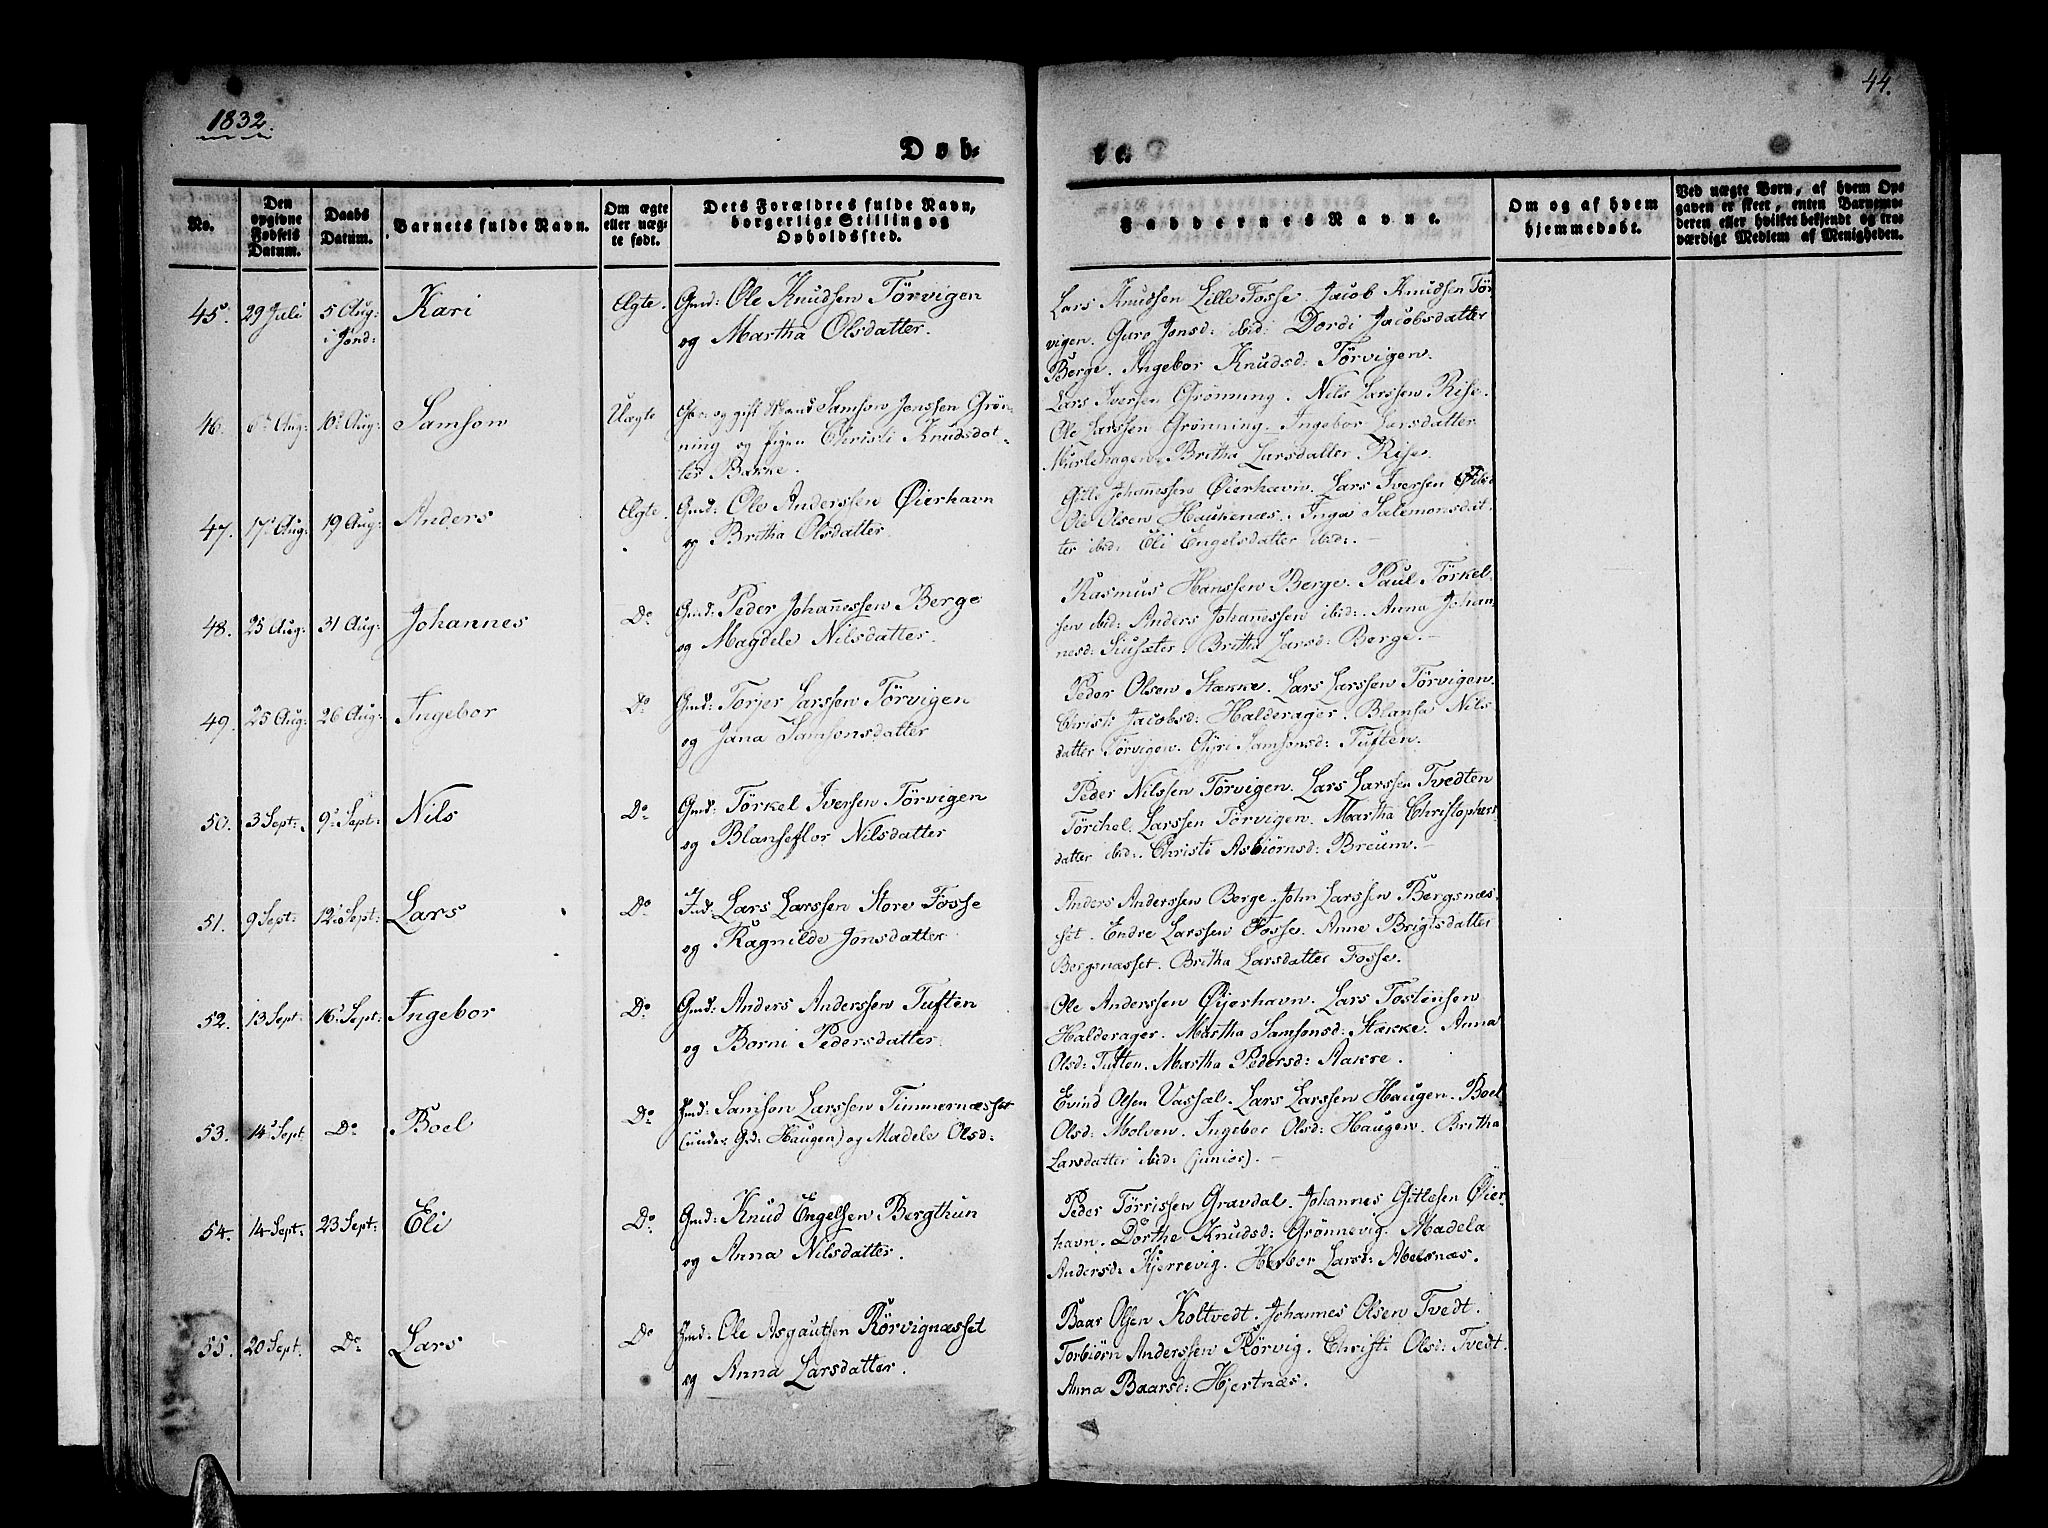 1832.
44.
Døb-
te.
No.
Den opgivne Fødsels Datum.
Daabs Datum.
Barnets fulde Navn.
Om ægte eller uægte født.
Dets Forældres fulde Navn, borgerlige Stilling og Opholdssted.
Faddernes Navne.
Om og af hvem hjemmedøbt.
Ved uægte Børn, af hvem Opgaven er skeet, enten Barnemoderen eller hvilket bekjendt og troværdigt Medlem af Menigheden.
45. 29 Juli 5 Aug: Kari Ægte. Gmd: Ole Knudsen Törvigen
i Jond: og Martha Olsdatter.
Lars Knudsen Lille Fosse. Jacob Knudsen Tör
vigen. Guro Jonsd: ibid: Dordi Jacobsdatter
Berge. Ingebor Knudsd: Törvigen.
46. 6 Aug: 10 Aug: Samson Uægte og gift Mand Samson Jonssen Grøn-
ning og Pigen Christi Knudsdat-
ter Bakke.
Lars Iversen Grønning. Nils Larssen Rise.
Ole Larssen Grønning. Ingebor Larsdatter
Murlehagen. Britha Larsdatter Rise.
47. 17 Aug: 19 Aug: Anders Ægte. Gmd: Ole Anderssen Øierhavn
og Britha Olsdatter.
Gitle Johannessen Øierhavn. Lars Iversen
Ole Olsen Haukenæs. Inga Salemonsdat-
ter ibid: Eli Engelsdatter ibid:.
48. 25 Aug: 31 Aug: Johannes Do Gmd: Peder Johannessen Berge
og Magdele Nilsdatter.
Rasmus Hanssen Berge. Paul Törkel-
sen ibid: Anders Johannessen ibid:. Anna Johan-
nesd: Britha Larsd: Berge.
49. 25 Aug: 26 Aug: Ingebor Do Gmd: Torjer Larssen Törvigen
og Jana Samsonsdatter
Peder Olsen Stække. Lars Larssen Törvigen.
Christi Jacobsd: Halderager. Blansa Nils
datter Törvigen. Gyri Samsonsd: Tuften.
50. 3 Sept: 9 Sept: Nils Do Gmd: Törkel Iversen Törvigen
og Blanseflor Nilsdatter
Peder Nilssen Törvigen. Lars Larssen Tvedten
Törchel Larssen Törvigen. Martha Christophers
datter ibid:. Christi Asbiørnsd: Breum.
51. 9 Sept: 12 Sept: Lars Do Ind: Lars Larssen Store Fosse
og Ragnilde Jonsdatter.
Anders Anderssen Berge. John Larssen Bergsnæs-
set. Endre Larssen Fosse. Anne Brigtsdatter
Bergsnæsset. Britha Larsdatter Fosse.
52. 13 Sept: 16 Sept: Ingebor Do Gmd: Anders Anderssen Tuften
og Borni Pedersdatter.
Ole Anderssen Øyerhavn. Lars Tostensen
Halderager. Martha Samsonsd: Stække. Anna
Olsd: Tuften. Martha Pedersd: Aakre.
53. 14 Sept Do Boel Do Hmd: Samson Larssen Timmernæsset
(under Grd: Haugen) og Madele Olsd:
Evind Olsen Vassæl. Lars Larssen Haugen. Boel
Olsd: Molven. Ingebor Olsd: Haugen. Britha
Larsdatter ibid: (junior).
54. 14 Sept: 23 Sept: Eli Do Gmd: Knud Engelsen Bergthun
og Anna Nilsdatter.
Peder Törrissen Gravdal. Johannes Gitlesen Øier-
havn. Dorthe Knudsd: Grønnevig. Madela
Andersd: Kjerrevig. Herbor Larsd: Abelsnæs.
55. 20 Sept. Do Lars Do Hmd: Ole Asgautsen Rörvignæsset
og Anna Larsdatter.
Baar Olsen Koltvedt. Johannes Olsen Tvedt.
Torbiörn Anderssen Rörvig. Christi Olsd: Tvedt.
Anna Baarsd: Hjertnæs.